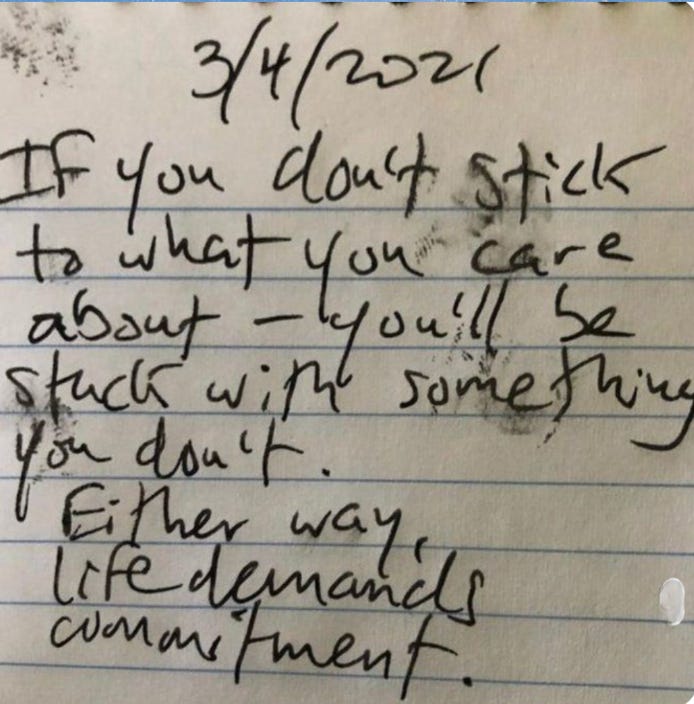 3/4/2021
If you don't stick
to what you care
about – you'll be
stuck with something
you don't.
Either way,
life demands
commitment.